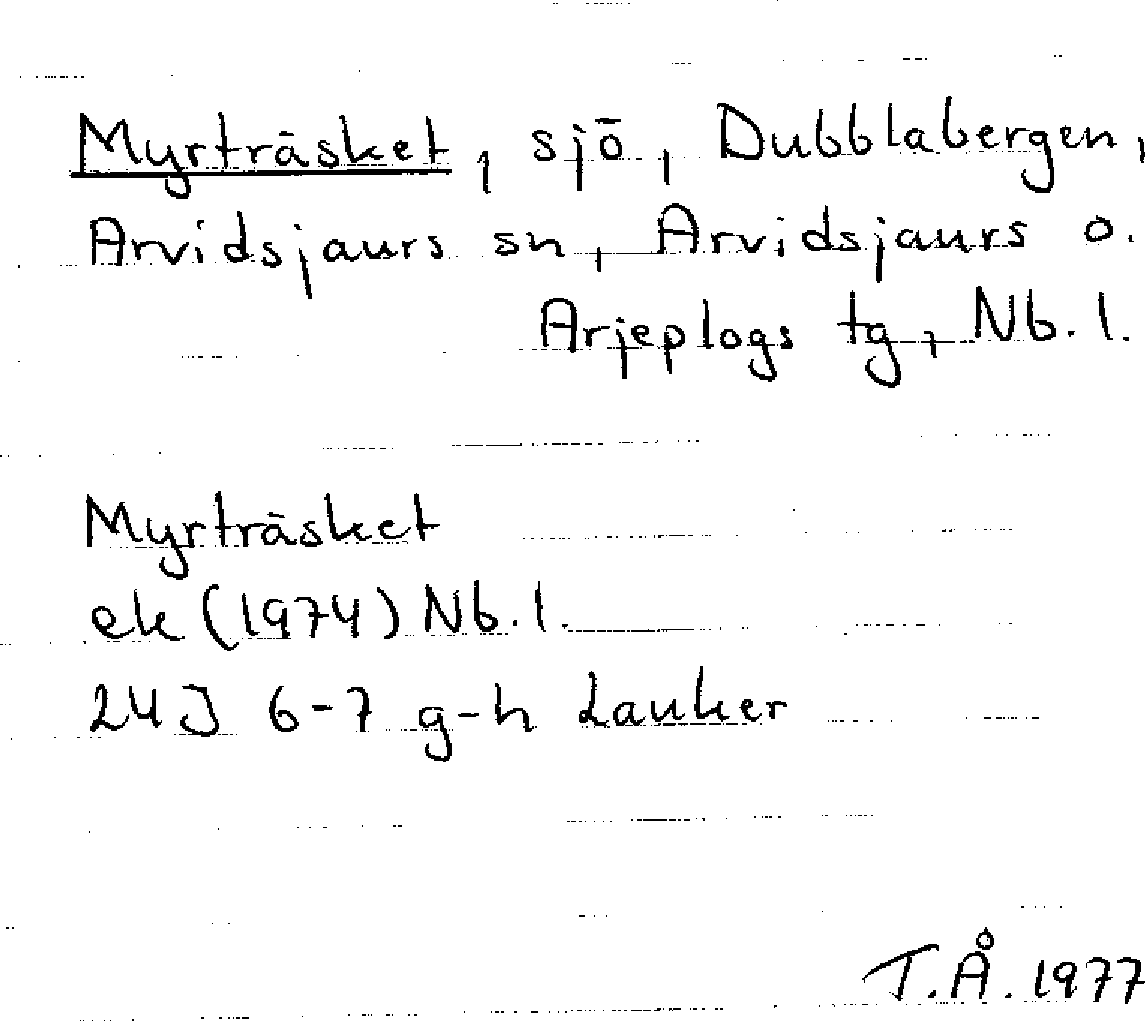 Myrträsket, sjö, Dubblabergen,
Arvidsjaurs sn, Arvidsjaurs o.
Arjeplogs tg, Nb. l.
Myrträsket
ek (1974) Nb. l.
24J 6-7 g-h Lauker
T.Å. 1977